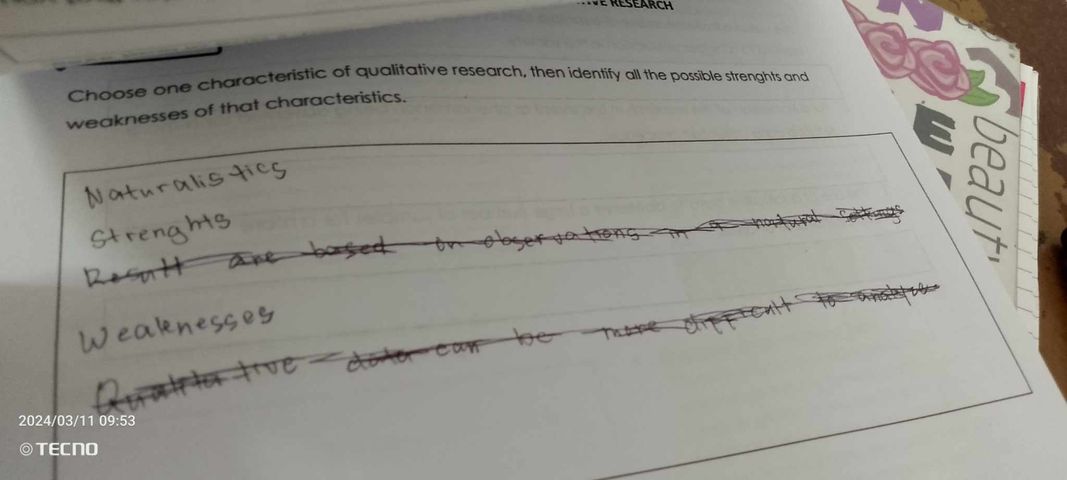 RESEARCH
Choose one characteristic of qualitative research, then identify all the possible strenghts and
weaknesses of that characteristics.
Naturalistics
Strenghts
Result are based on observations in a
Weaknesses
Qualitative data can be more difficult to analyze
2024/03/11 09:53
TECNO
E
beaut